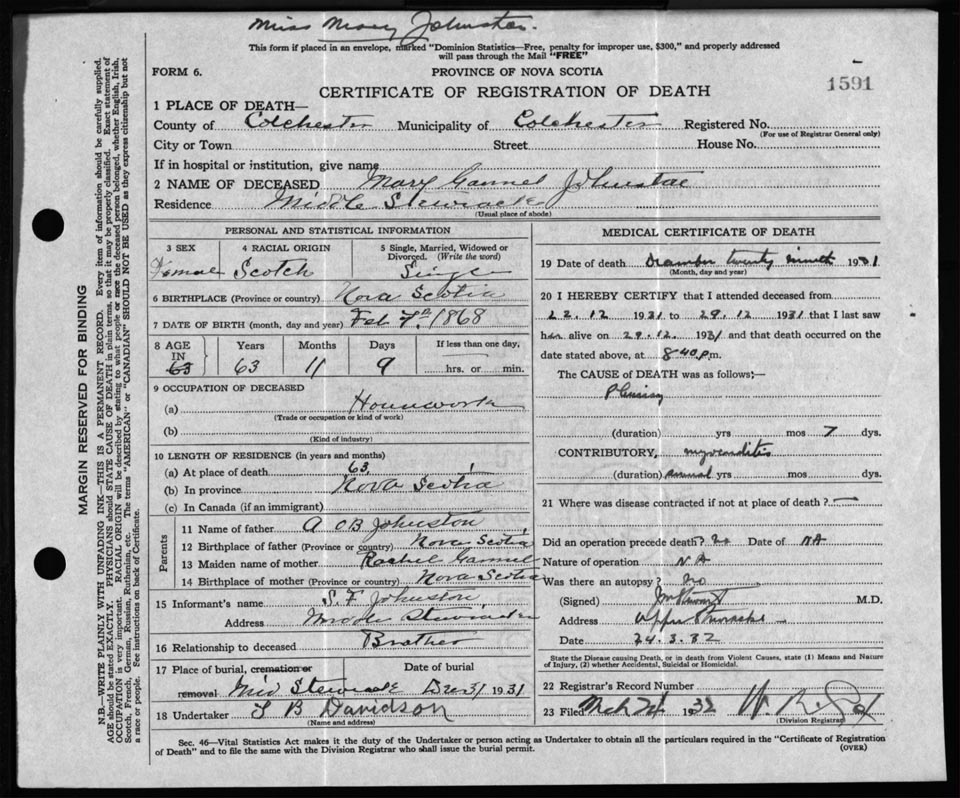 Miss Mary Johnston.
This form if placed in an envelope, marked "Dominion Statistics—Free, penalty for improper use, $300," and properly addressed
will pass through the Mail "FREE"
FORM 6.
PROVINCE OF NOVA SCOTIA
1591
CERTIFICATE OF REGISTRATION OF DEATH
1 PLACE OF DEATH—
County of Colchester Municipality of Colchester Registered No.
(For use of Registrar General only)
City or Town Street House No.
If in hospital or institution, give name
2 NAME OF DECEASED Mary Gammel Johnston
Residence Middle Stewiacke
(Usual place of abode)
PERSONAL AND STATISTICAL INFORMATION
3 SEX 4 RACIAL ORIGIN 5 Single, Married, Widowed or Divorced. (Write the word)
Female Scotch Single
6 BIRTHPLACE (Province or country) Nova Scotia
7 DATE OF BIRTH (month, day and year) Feb 7th 1868
8 AGE IN Years Months Days If less than one day,
63 63 11 9 hrs. or min.
9 OCCUPATION OF DECEASED
(a) Housework
(Trade or occupation or kind of work)
(b)
(Kind of industry)
10 LENGTH OF RESIDENCE (in years and months)
(a) At place of death 63
(b) In province Nova Scotia
(c) In Canada (if an immigrant)
Parents
11 Name of father A OB Johnston
12 Birthplace of father (Province or country) Nova Scotia
13 Maiden name of mother Rachel Gammel
14 Birthplace of mother (Province or country) Nova Scotia
15 Informant's name S. F Johnston
Address Middle Stewiacke
16 Relationship to deceased Brother
17 Place of burial, cremation or removal Date of burial
Mid Stewiacke Dec 31 1931
18 Undertaker B Davidson
(Name and address)
MEDICAL CERTIFICATE OF DEATH
19 Date of death December twenty ninth 1931
(Month, day and year)
20 I HEREBY CERTIFY that I attended deceased from
22.12 1931 to 29.12 1931 that I last saw
her alive on 29.12. 1931 and that death occurred on the
date stated above, at 8 40 p.m.
The CAUSE of DEATH was as follows:—
Pleurisy
(duration) yrs mos 7 dys.
CONTRIBUTORY, myocarditis
(duration) several yrs mos dys.
21 Where was disease contracted if not at place of death?
Did an operation precede death? no Date of NA
Nature of operation NA
Was there an autopsy? no
(Signed) M.D.
Address Upper Stewiacke
Date 24.3.32
State the Disease causing Death, or in death from Violent Causes, state (1) Means and Nature
of Injury, (2) whether Accidental, Suicidal or Homicidal.
22 Registrar's Record Number
23 Filed Mch 24 1932
(Division Registrar)
Sec. 46—Vital Statistics Act makes it the duty of the Undertaker or person acting as Undertaker to obtain all the particulars required in the "Certificate of Registration
of Death" and to file the same with the Division Registrar who shall issue the burial permit.
(OVER)
MARGIN RESERVED FOR BINDING
N.B.—WRITE PLAINLY WITH UNFADING INK—THIS IS A PERMANENT RECORD. Every item of information should be carefully supplied.
AGE should be stated EXACTLY. PHYSICIANS should STATE CAUSE OF DEATH in plain terms, so that it may be properly classified. Exact statement of
OCCUPATION is very important. RACIAL ORIGIN will be described by stating to what people or race the deceased person belonged, whether English, Irish,
Scotch, French, German, Russian, Ruthenian, etc. The terms "AMERICAN" or "CANADIAN" SHOULD NOT BE USED as they express citizenship but not
a race or people. See instructions on back of Certificate.